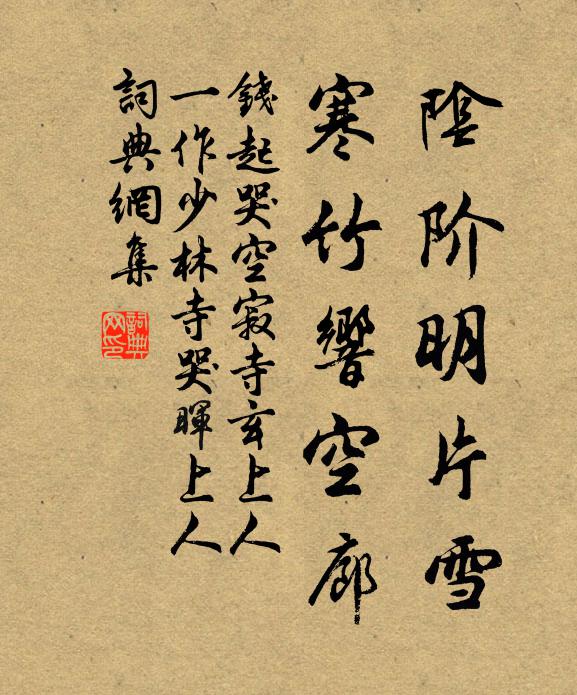 陰阶明片雪
寒竹響空廊
錢起哭空寂寺玄上人
一作少林寺哭暉上人
詞典網集
詞典网印